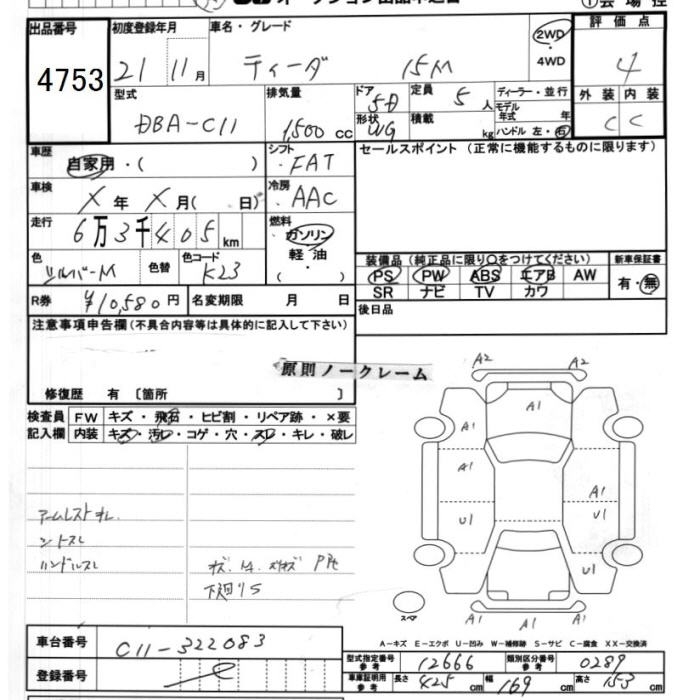 出品番号 初度登録年月 車名・グレード 評価点
4753 21 11月 ティーダ 15M 2WD 4
4WD
型式 排気量 ドア 5D 定員 5人 ディーラー・並行 外装 内装
DBA-C11 1,500 cc 形状 積載 kg モデル年式 年 C C
ハンドル 左・右
車歴 シフト セールスポイント(正常に機能するものに限ります)
自家用・( ) FAT
車検 冷房
X年 X月( 日) AAC
走行 燃料
6万3千405km ガソリン
色 色替 色コード 軽油 装備品(純正品に限り○をつけてください) 新車保証書
シルバーM K23 ・( ) PS PW ABS エアB AW 有・無
SR ナビ TV カワ
R券 ¥10,580円 名変期限 月 日 後日品
注意事項申告欄(不具合内容等は具体的に記入して下さい)
原則ノークレーム
修復歴 有〔箇所 〕
検査員 FW キズ・飛石・ヒビ割・リペア跡・×要
記入欄 内装 キズ・汚レ・コゲ・穴・スレ・キレ・破レ
A2 A2
A1
A1
A1 A1
U1 U1
U1
アームレスト
ハンドルスレ
下廻りS
スペア
A1 A1 A1
A-キズ E-エクボ U-凹み W-補修跡 S-サビ C-腐食 XX-交換済
車台番号 C11-322083
型式指定番号 参考 12666 類別区分番号 参考 0289
登録番号
車庫証明用 参考 長さ 425 cm 幅 169 cm 高さ 153 cm